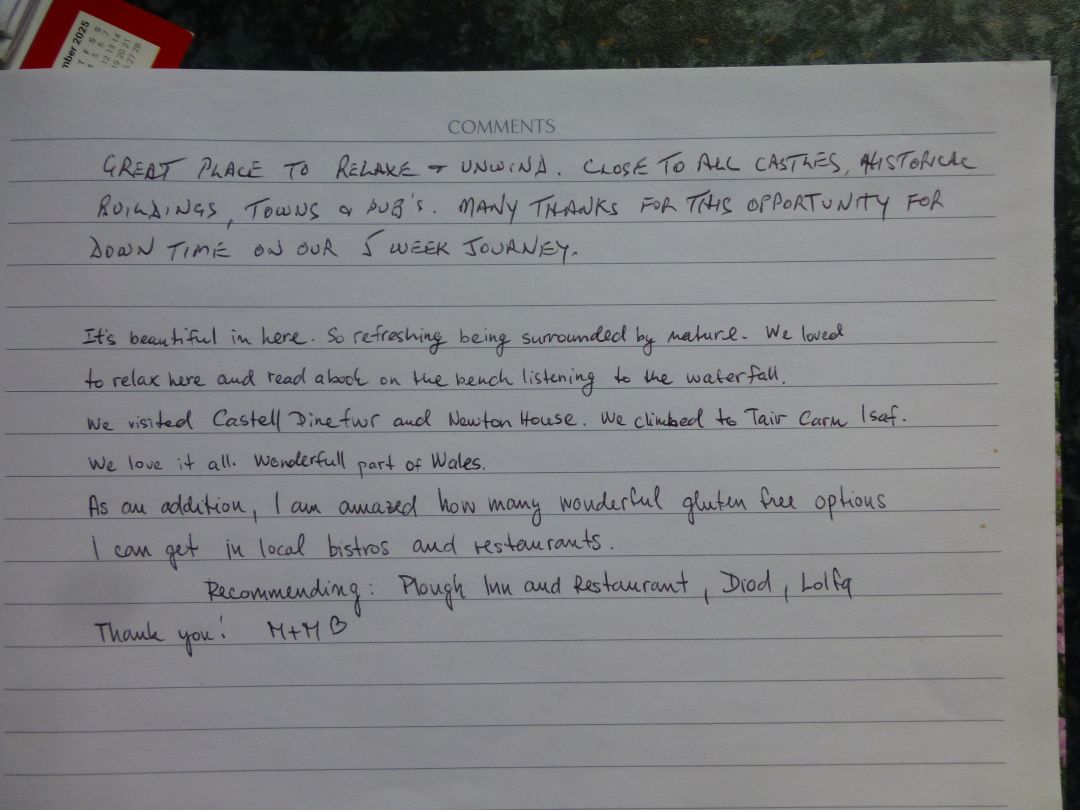 mber 2025
T F S S
4 5 6 7
12 13 14
19 20 21
27 28
COMMENTS
GREAT PLACE TO RELAXE + UNWIND. CLOSE TO ALL CASTLES, HISTORICAL
BUILDINGS, TOWNS & PUB'S. MANY THANKS FOR THIS OPPORTUNITY FOR
DOWN TIME ON OUR 5 WEEK JOURNEY.
It's beautiful in here. So refreshing being surrounded by nature. We loved
to relax here and read a book on the bench listening to the waterfall.
We visited Castell Dinefwr and Newton House. We climbed to Tair Carn Isaf.
We love it all. Wonderfull part of Wales.
As an addition, I am amazed how many wonderful gluten free options
I can get in local bistros and restaurants.
Recommending: Plough Inn and Restaurant, Diod, Lolfa
Thank you! M+M ♡